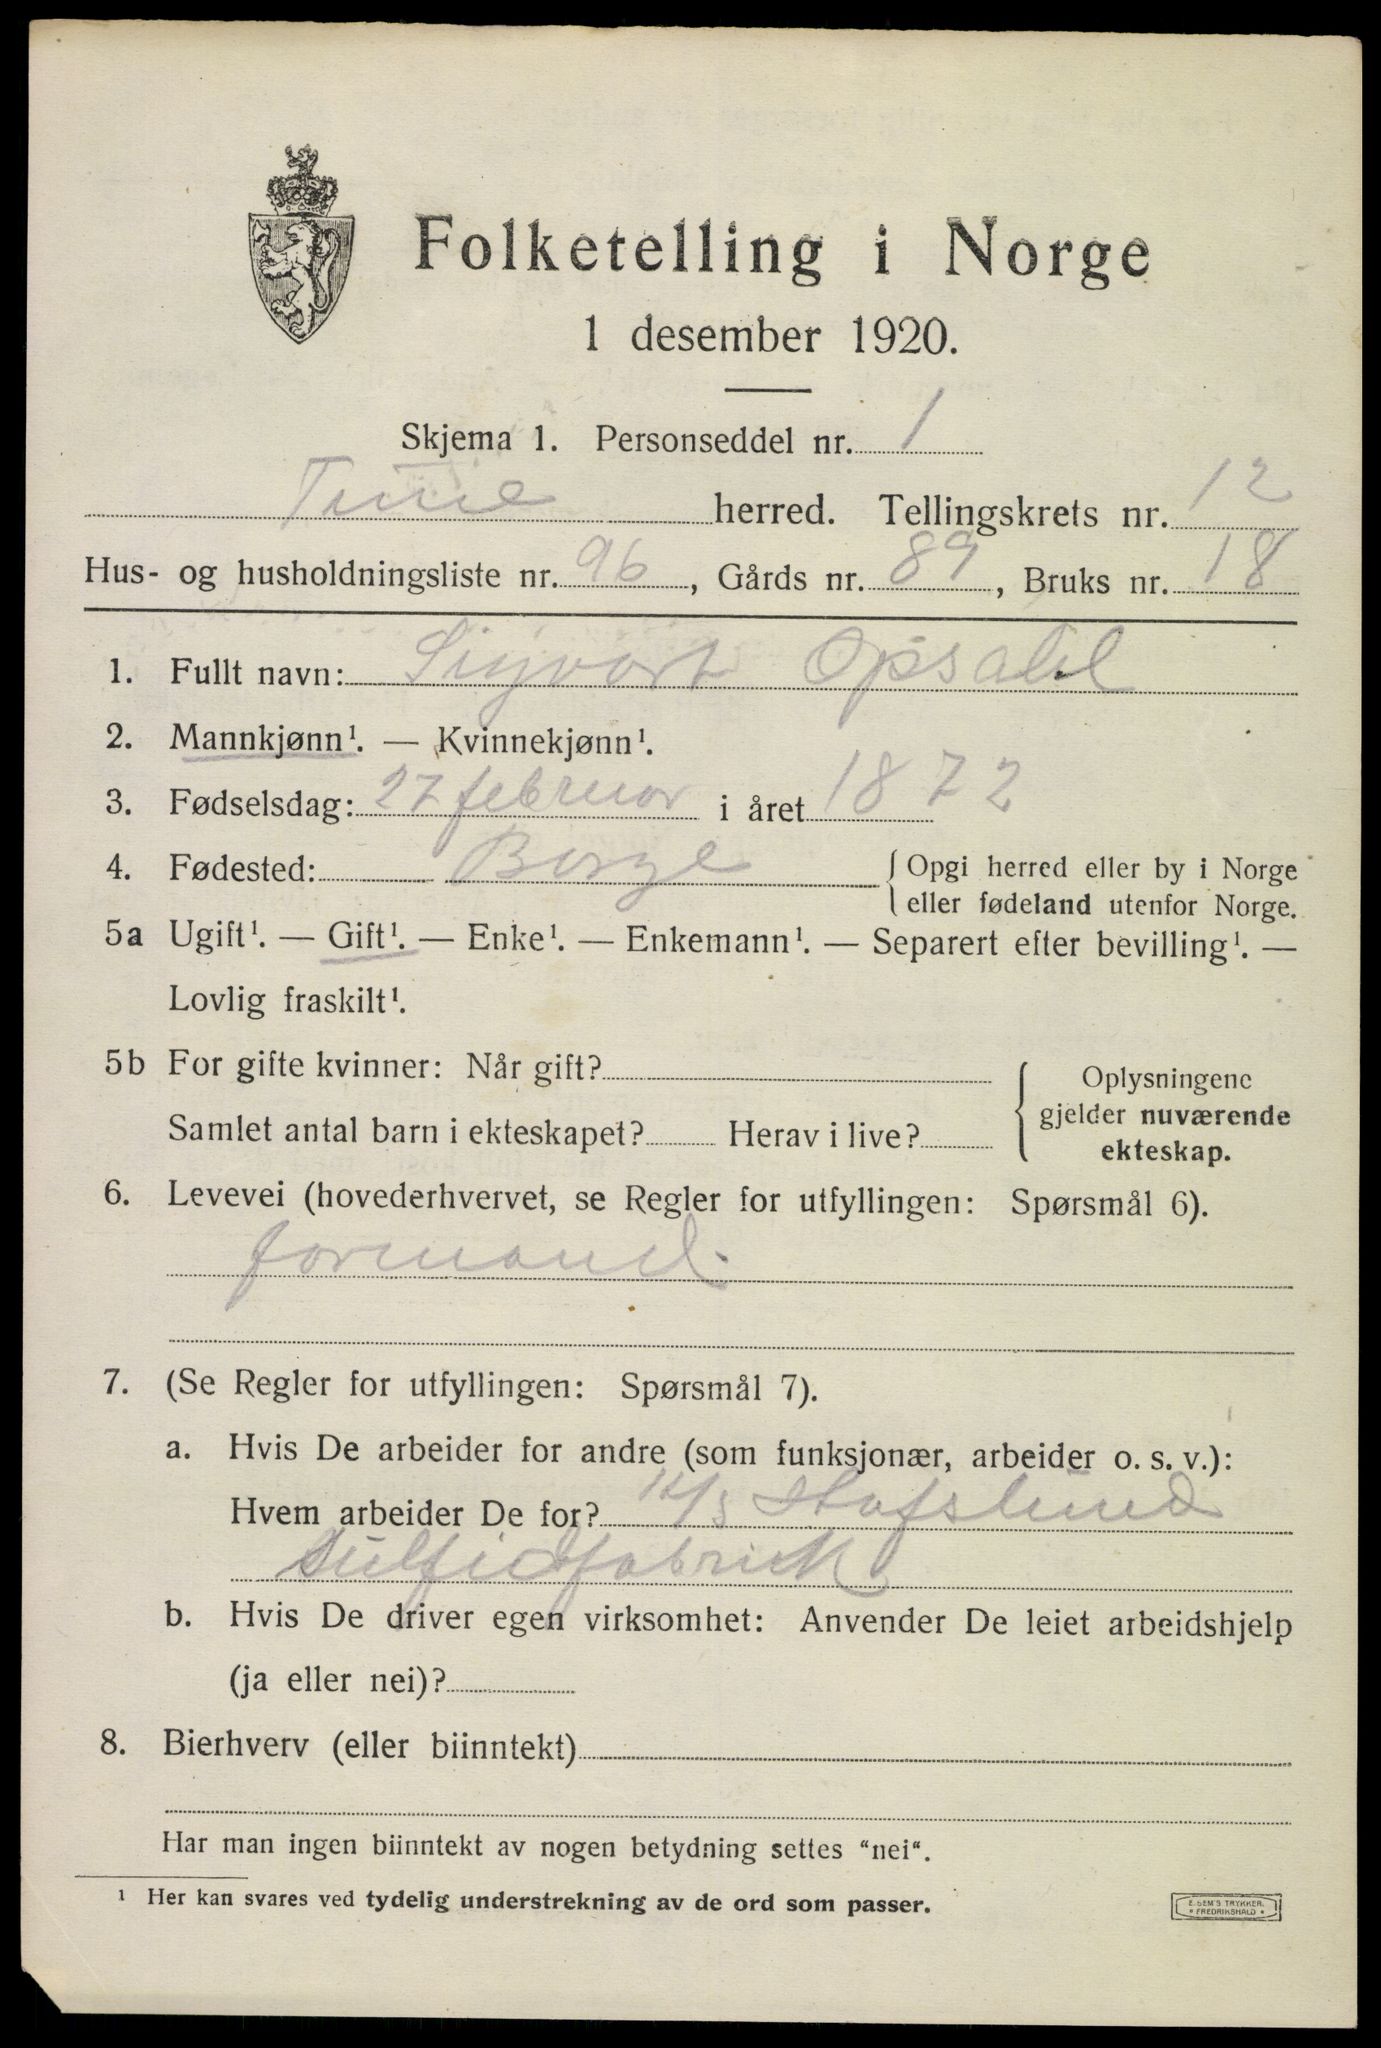 Folketelling i Norge
1 desember 1920.
Skjema 1. Personseddel nr. 1
Tune herred. Tellingskrets nr. 12
Hus- og husholdningsliste nr. 96, Gårds nr. 89, Bruks nr. 18
1. Fullt navn: Sigvart Opsahl
2. Mannkjønn¹. — Kvinnekjønn¹.
3. Fødselsdag: 27 februar i året 1872
4. Fødested: Borge { Opgi herred eller by i Norge
eller fødeland utenfor Norge.
5a Ugift¹. — Gift¹. — Enke¹. — Enkemann¹. — Separert efter bevilling¹. —
Lovlig fraskilt¹.
5b For gifte kvinner: Når gift?
Samlet antal barn i ekteskapet? Herav i live?
{ Oplysningene
gjelder nuværende
ekteskap.
6. Levevei (hovederhvervet, se Regler for utfyllingen: Spørsmål 6).
formand.
7. (Se Regler for utfyllingen: Spørsmål 7).
a. Hvis De arbeider for andre (som funksjonær, arbeider o. s. v.):
Hvem arbeider De for? Hafslund
Sulfidfabrik
b. Hvis De driver egen virksomhet: Anvender De leiet arbeidshjelp
(ja eller nei)?
8. Bierhverv (eller biinntekt)
Har man ingen biinntekt av nogen betydning settes "nei".
¹ Her kan svares ved tydelig understrekning av de ord som passer.
E. SEM'S TRYKKER.
• FREDRIKSHALD •